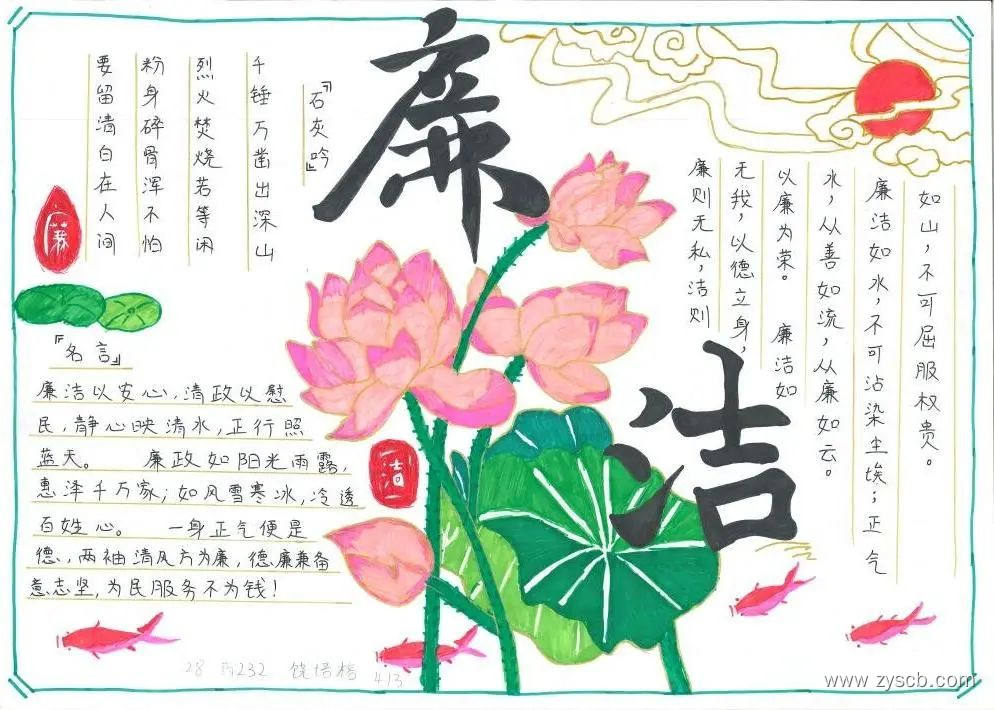 廉
洁
『石灰吟』
千锤万凿出深山
烈火焚烧若等闲
粉身碎骨浑不怕
要留清白在人间
廉
『名言』
廉洁以安心,清政以慰
民,静心映清水,正行照
蓝天。 廉政如阳光雨露,
惠泽千万家;如风雪寒冰,冷透
百姓心。 一身正气便是
德,两袖清风方为廉,德廉兼备
意志坚,为民服务不为钱!
洁
廉则无私,洁则
无我,以德立身,
以廉为荣。 廉洁如
水,从善如流,从廉如云。
廉洁如水,不可沾染尘埃;正气
如山,不可屈服权贵。
28 232 413
www.zyscb.com